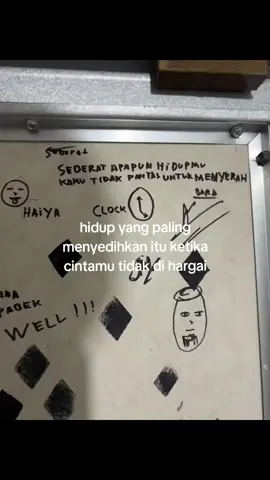 SEDERAT APAPUN HIDUPMU
KAMU TIDAK PANTAS UNTUK MENYERAH
BARA
HAIYA
CLOCK
hidup yang paling
menyedihkan itu ketika
cintamu tidak di hargai
WELL!!!